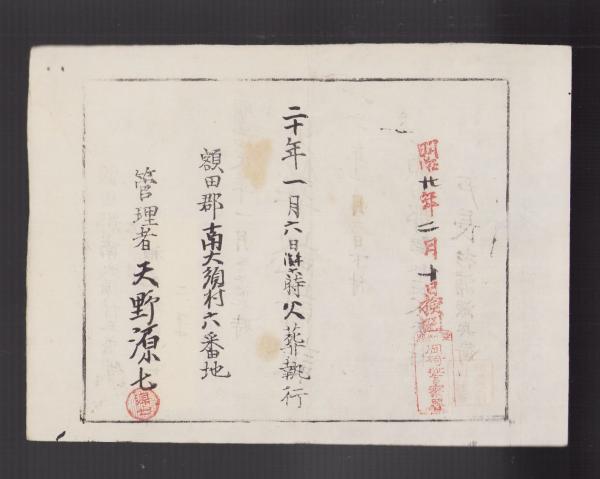 明治廿年二月十日検認
岡崎警察署
二十年一月六日 時火葬執行
額田郡南大須村六番地
管理者 天野源七
源七